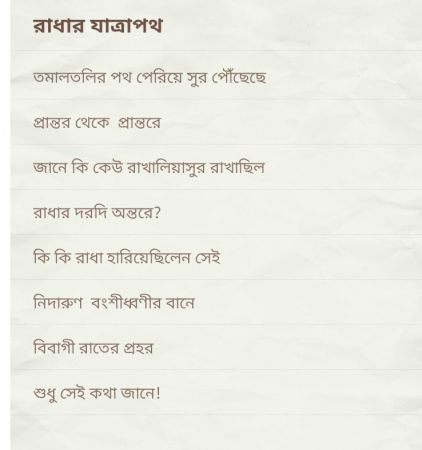 রাধার যাত্রাপথ
তমালতলির পথ পেরিয়ে সুর পৌঁছেছে
প্রান্তর থেকে প্রান্তরে
জানে কি কেউ রাখালিয়াসুর রাখাছিল
রাধার দরদি অন্তরে?
কি কি রাধা হারিয়েছিলেন সেই
নিদারুণ বংশীধ্বণীর বানে
বিবাগী রাতের প্রহর
শুধু সেই কথা জানে!